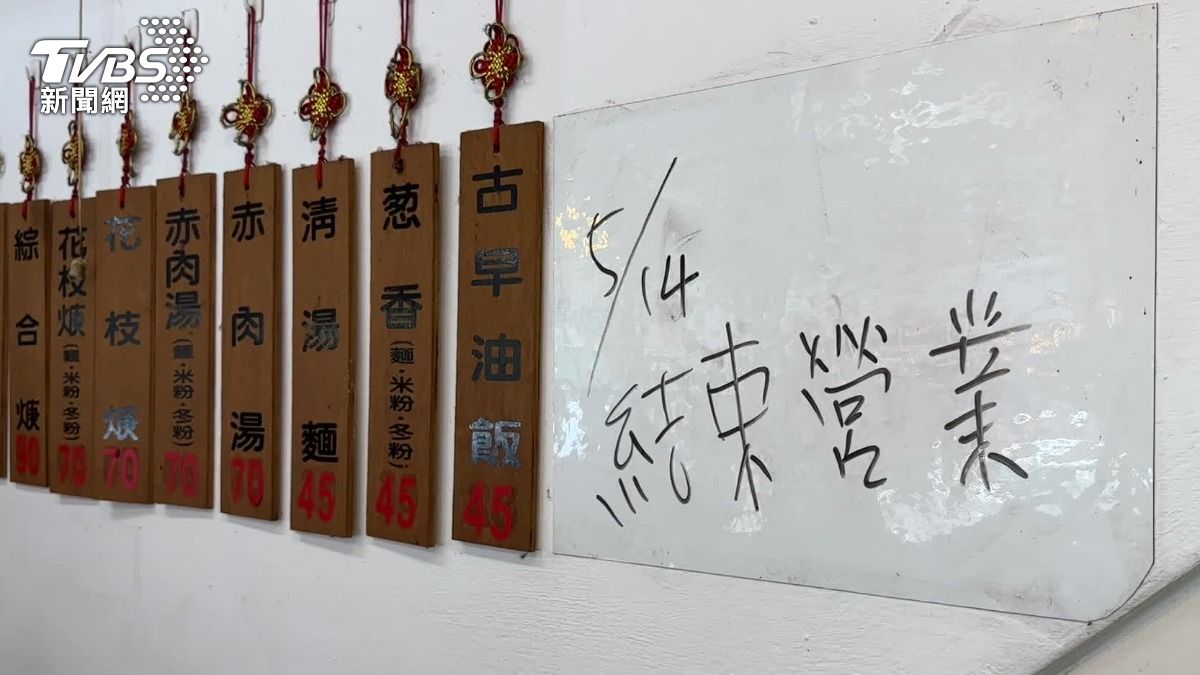 TVBS
新聞網
古早油飯
45
葱香(麵·米粉·冬粉)
45
清湯麵
45
赤肉湯
70
赤肉湯(麵·米粉·冬粉)
70
花枝焿
70
花枝焿(麵·米粉·冬粉)
70
綜合焿
90
5/14
結束營業